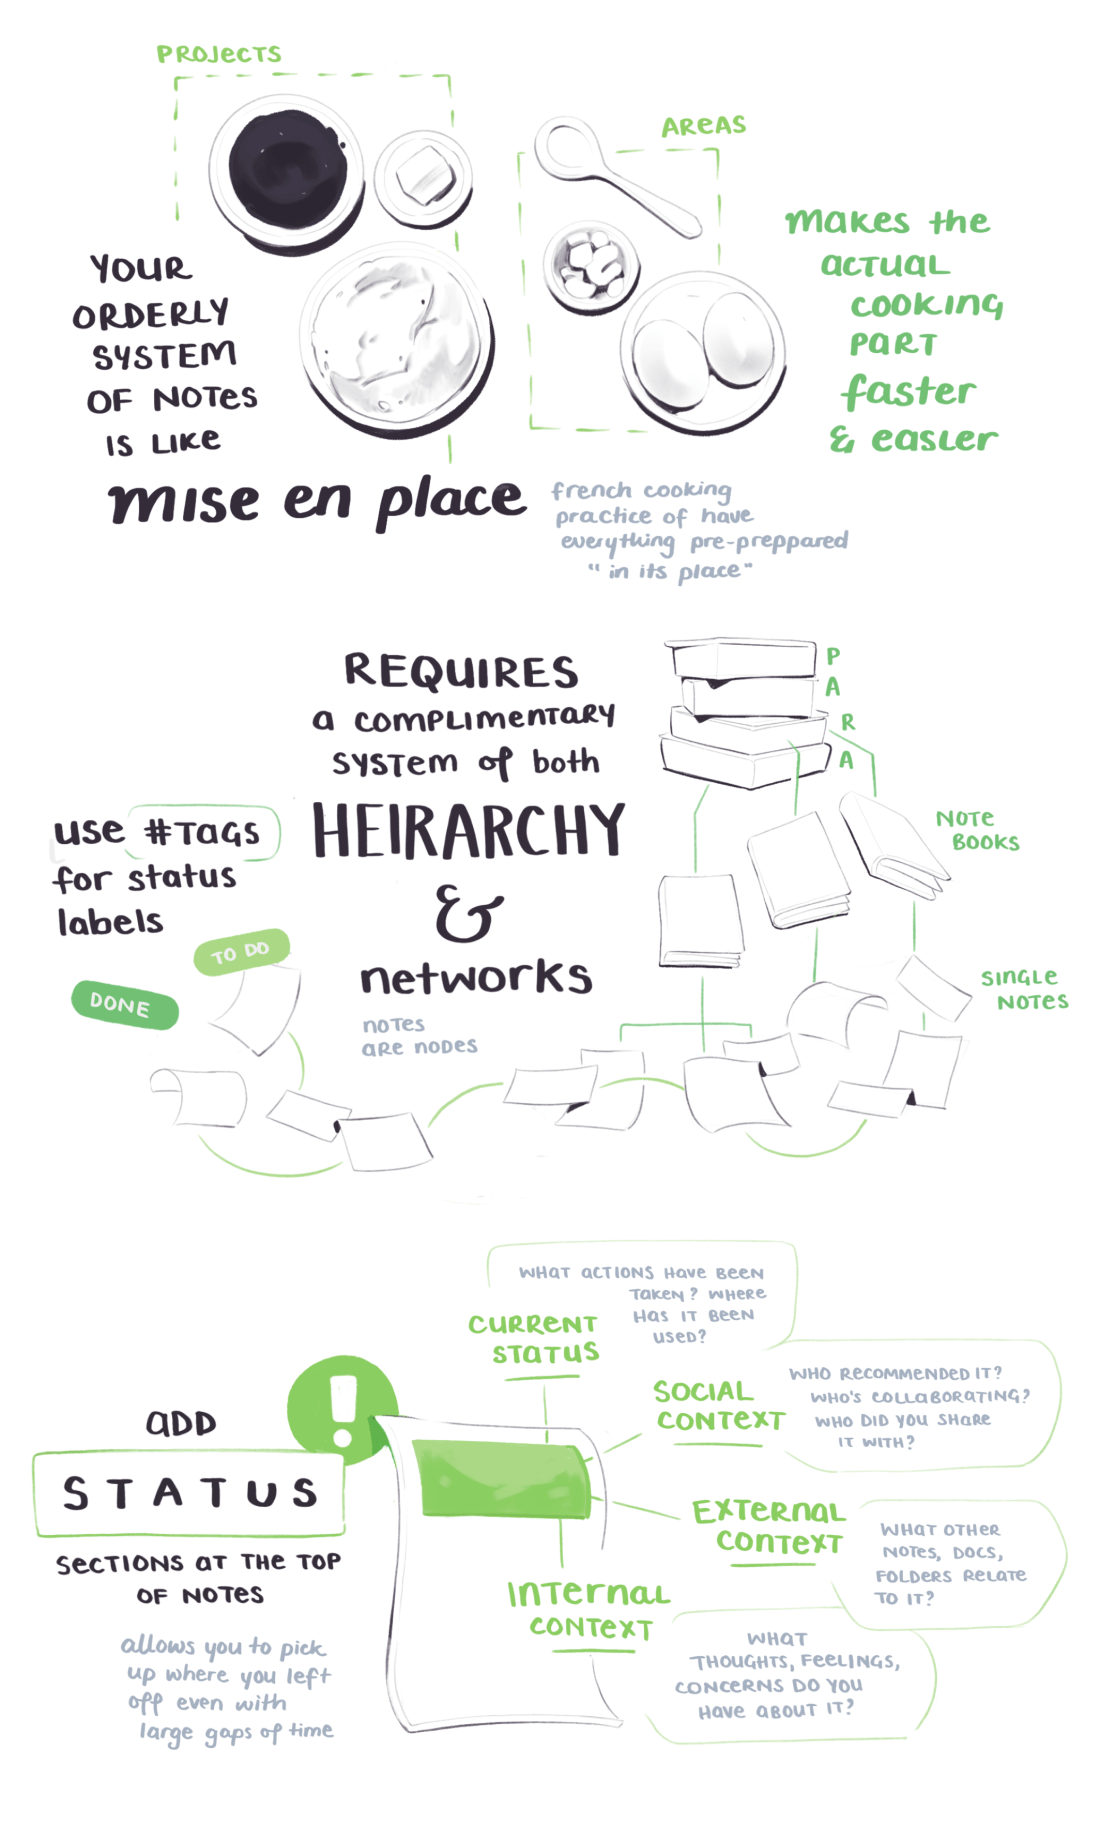 PROJECTS
AREAS
YOUR
ORDERLY
SYSTEM
OF NOTES
IS LIKE
mise en place
french cooking
practice of have
everything pre-preppared
"in its place"
makes the
actual
cooking
part
faster
& easier
REQUIRES
a complimentary
system of both
HEIRARCHY
&
networks
notes
are nodes
P
A
R
A
NOTE
BOOKS
SINGLE
NOTES
use #TAGS
for status
labels
TO DO
DONE
ADD
STATUS
SECTIONS AT THE TOP
OF NOTES
allows you to pick
up where you left
off even with
large gaps of time
CURRENT
STATUS
WHAT ACTIONS HAVE BEEN
TAKEN? WHERE
HAS IT BEEN
USED?
SOCIAL
CONTEXT
WHO RECOMMENDED IT?
WHO'S COLLABORATING?
WHO DID YOU SHARE
IT WITH?
EXTERNAL
CONTEXT
WHAT OTHER
NOTES, DOCS,
FOLDERS RELATE
TO IT?
INTERNAL
CONTEXT
WHAT
THOUGHTS, FEELINGS,
CONCERNS DO YOU
HAVE ABOUT IT?